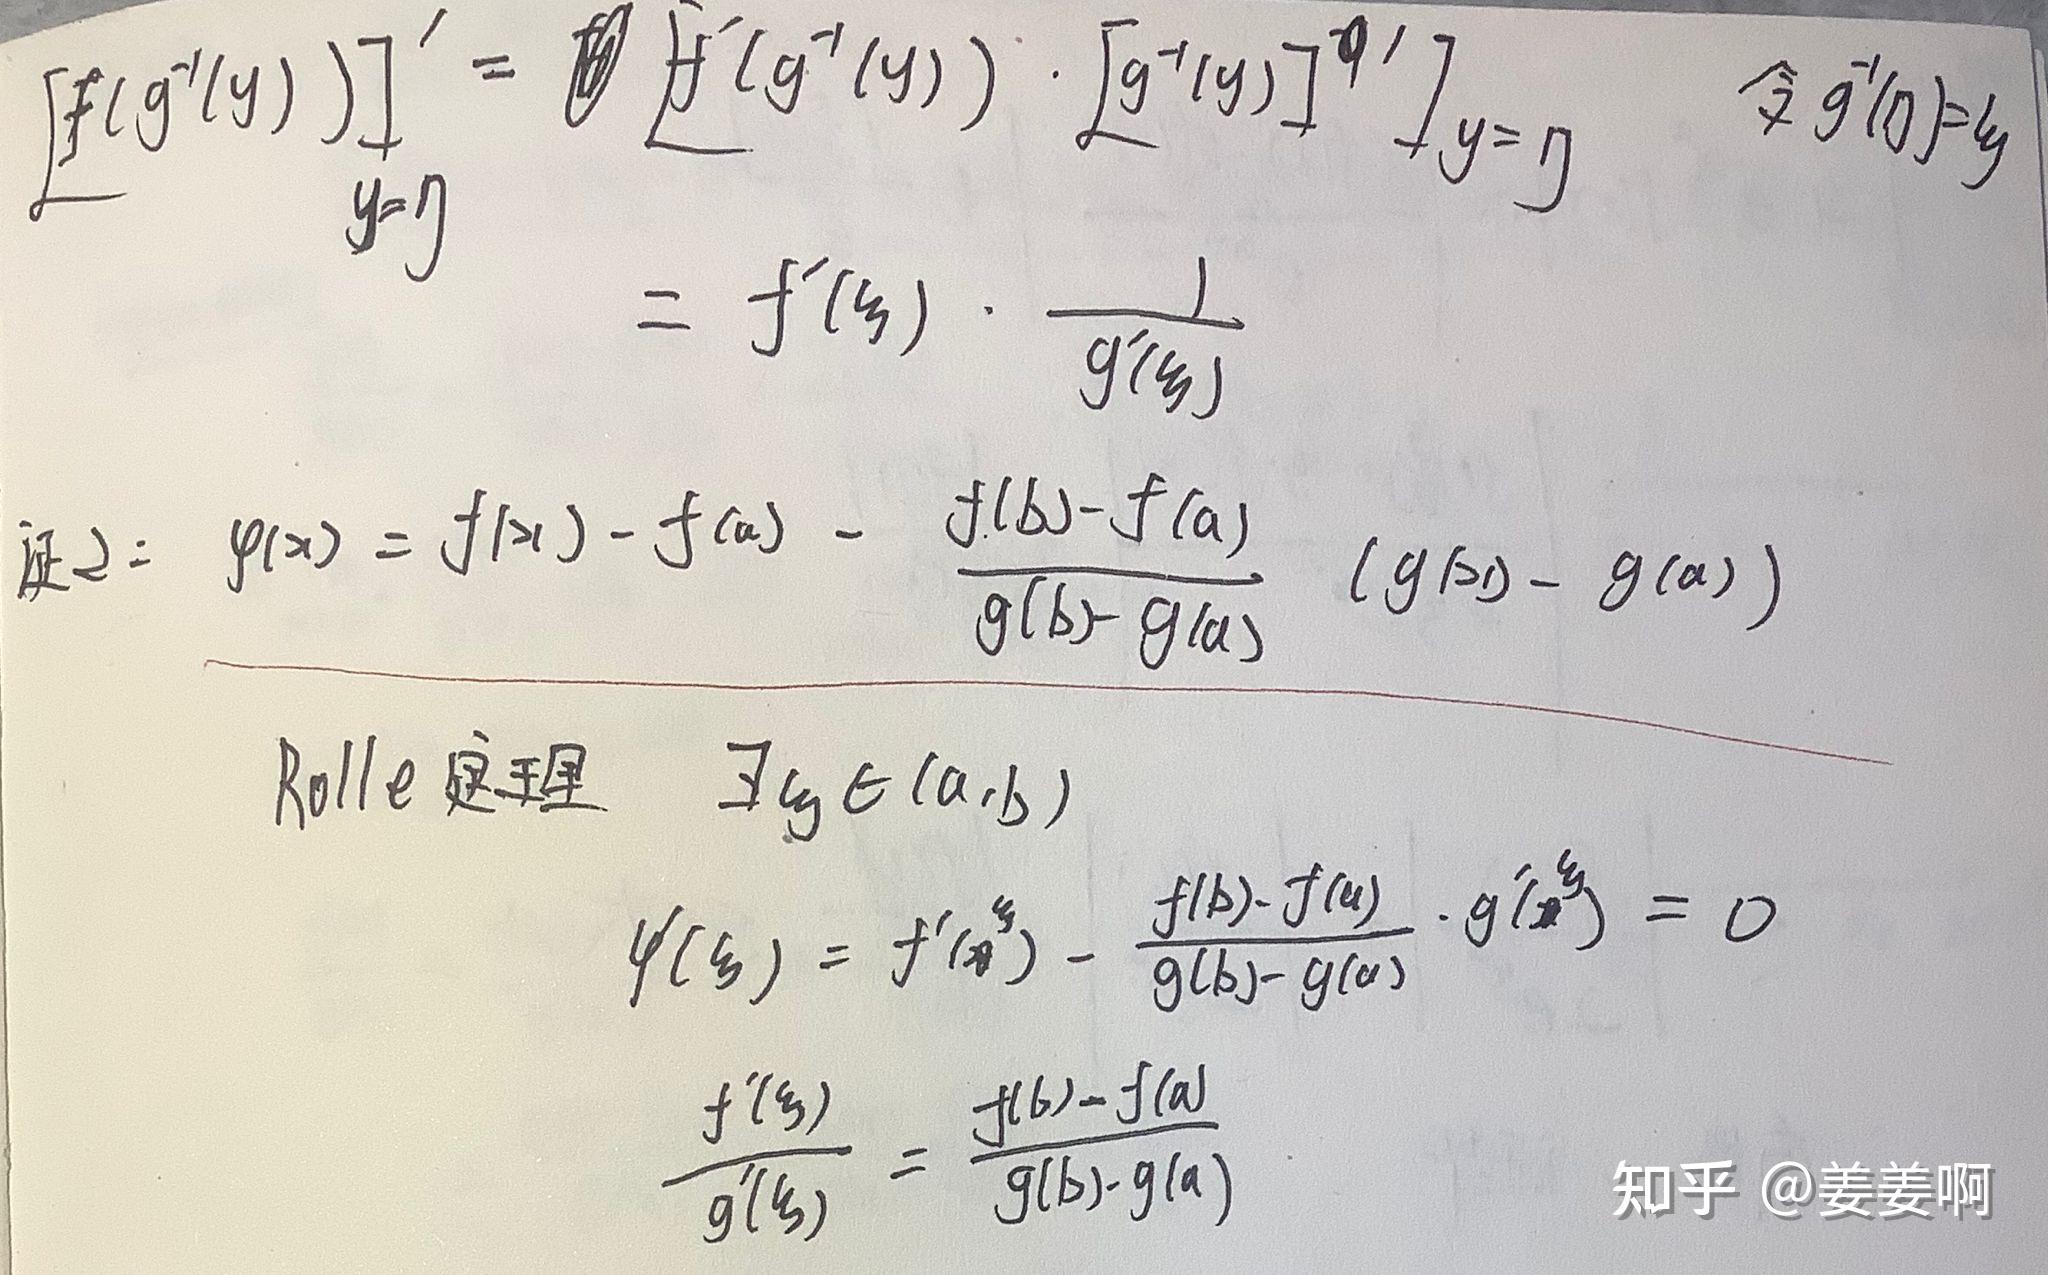 [f(g⁻¹(y))]'_{y=η} = [f'(g⁻¹(y)) · [g⁻¹(y)]']_{y=η} 令 g⁻¹(η)=ξ
= f'(ξ) · 1/g'(ξ)
证2: φ(x) = f(x) - f(a) - (f(b)-f(a))/(g(b)-g(a)) (g(x) - g(a))
Rolle定理 ∃ξ∈(a,b)
φ'(ξ) = f'(ξ) - (f(b)-f(a))/(g(b)-g(a)) · g'(ξ) = 0
f'(ξ)/g'(ξ) = (f(b)-f(a))/(g(b)-g(a))
知乎 @姜姜啊